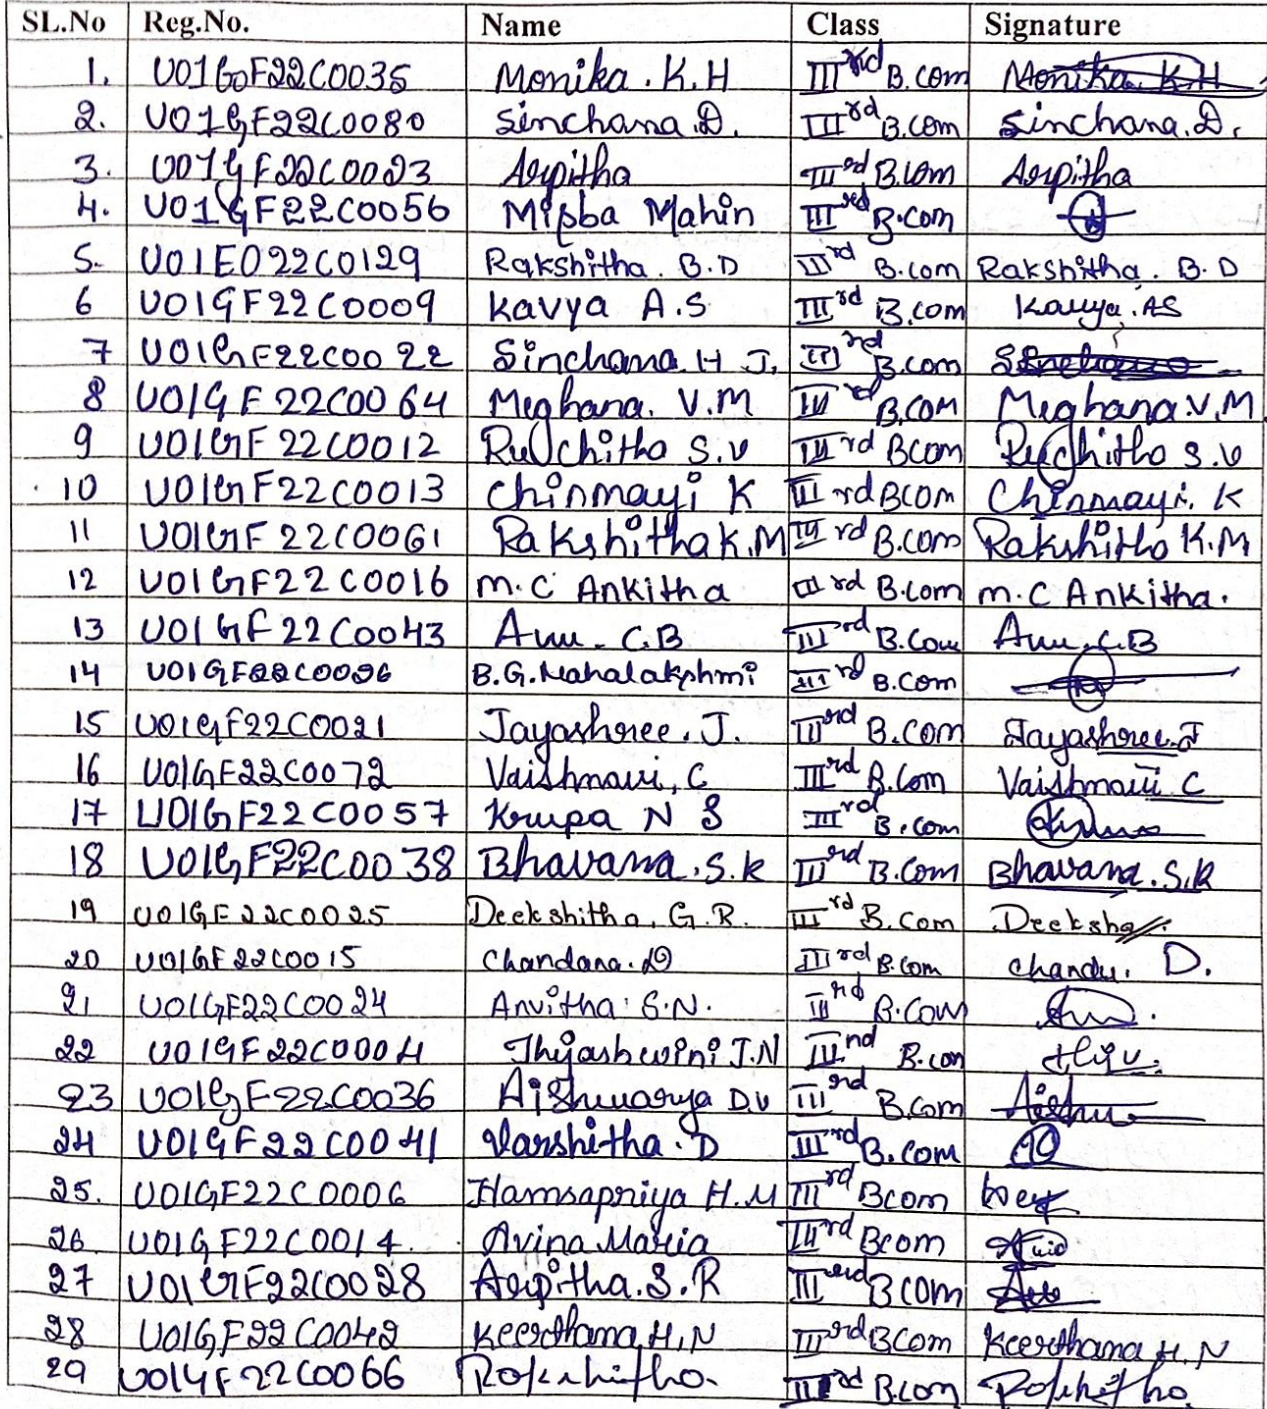 SL.No Reg.No. Name Class Signature
1. U01GF22C0035 Monika. K.H IIIrd B.com Monika. K.H
2. U01GF22C0080 Sinchana.D. IIIrd B.com Sinchana.D.
3. U01GF22C0023 Arpitha IIIrd B.com Arpitha
4. U01GF22C0056 Misba Mahin IIIrd B.com
5. U01EO22C0129 Rakshitha. B.D IIIrd B.com Rakshitha. B.D
6 U01GF22C0009 Kavya A.S IIIrd B.com Kavya.AS
7 U01GF22C0022 Sinchana. H J. IIIrd B.com Sinchana
8 U01GF22C0064 Meghana. V.M IIIrd B.COM Meghana.V.M
9 U01GF22C0012 Ruchitha S.V IIIrd BCom Ruchitha S.V
10 U01GF22C0013 Chinmayi K IIIrd BCOM Chinmayi. K
11 U01GF22C0061 Rakshitha K.M IIIrd B.com Rakshitha K.M
12 U01GF22C0016 M.C Ankitha IIIrd B.com M.C Ankitha.
13 U01GF22C0043 Anu. C.B IIIrd B.Com Anu.C.B
14 U01GF22C0026 B.G.Mahalakshmi IIIrd B.Com
15 U01GF22C0021 Jayashree. J. IIIrd B.Com Jayashree.J
16 U01GF22C0072 Vaishnavi, C IIIrd B.Com Vaishnavi C
17 U01GF22C0057 Krupa N S IIIrd B.com
18 U01GF22C0038 Bhavana.S.K IIIrd B.Com Bhavana.S.K
19 U01GF22C0025 Deekshitha. G.R. IIIrd B.Com Deeksha
20 U01GF22C0015 Chandana.D IIIrd B.Com chandu. D.
21 U01GF22C0024 Anvitha S.N. IIIrd B.Com
22 U01GF22C0004 Thejashwini J.N IIInd B.com
23 U01GF22C0036 Aishwarya D.V IIIrd B.Com Aishu
24 U01GF22C0041 Varshitha. D IIIrd B.Com
25. U01GF22C0006 Hamsapriya H.M IIIrd Bcom
26 U01GF22C0014. Avina Maria IIIrd Bcom
27 U01GF22C0028 Arpitha.S.R IIIrd BCOM
28 U01GF22C0042 Keerthana.H.N IIIrd BCom Keerthana H.N
29 U01GF22C0066 Rakshitha. IIIrd B.Com Rakshitha